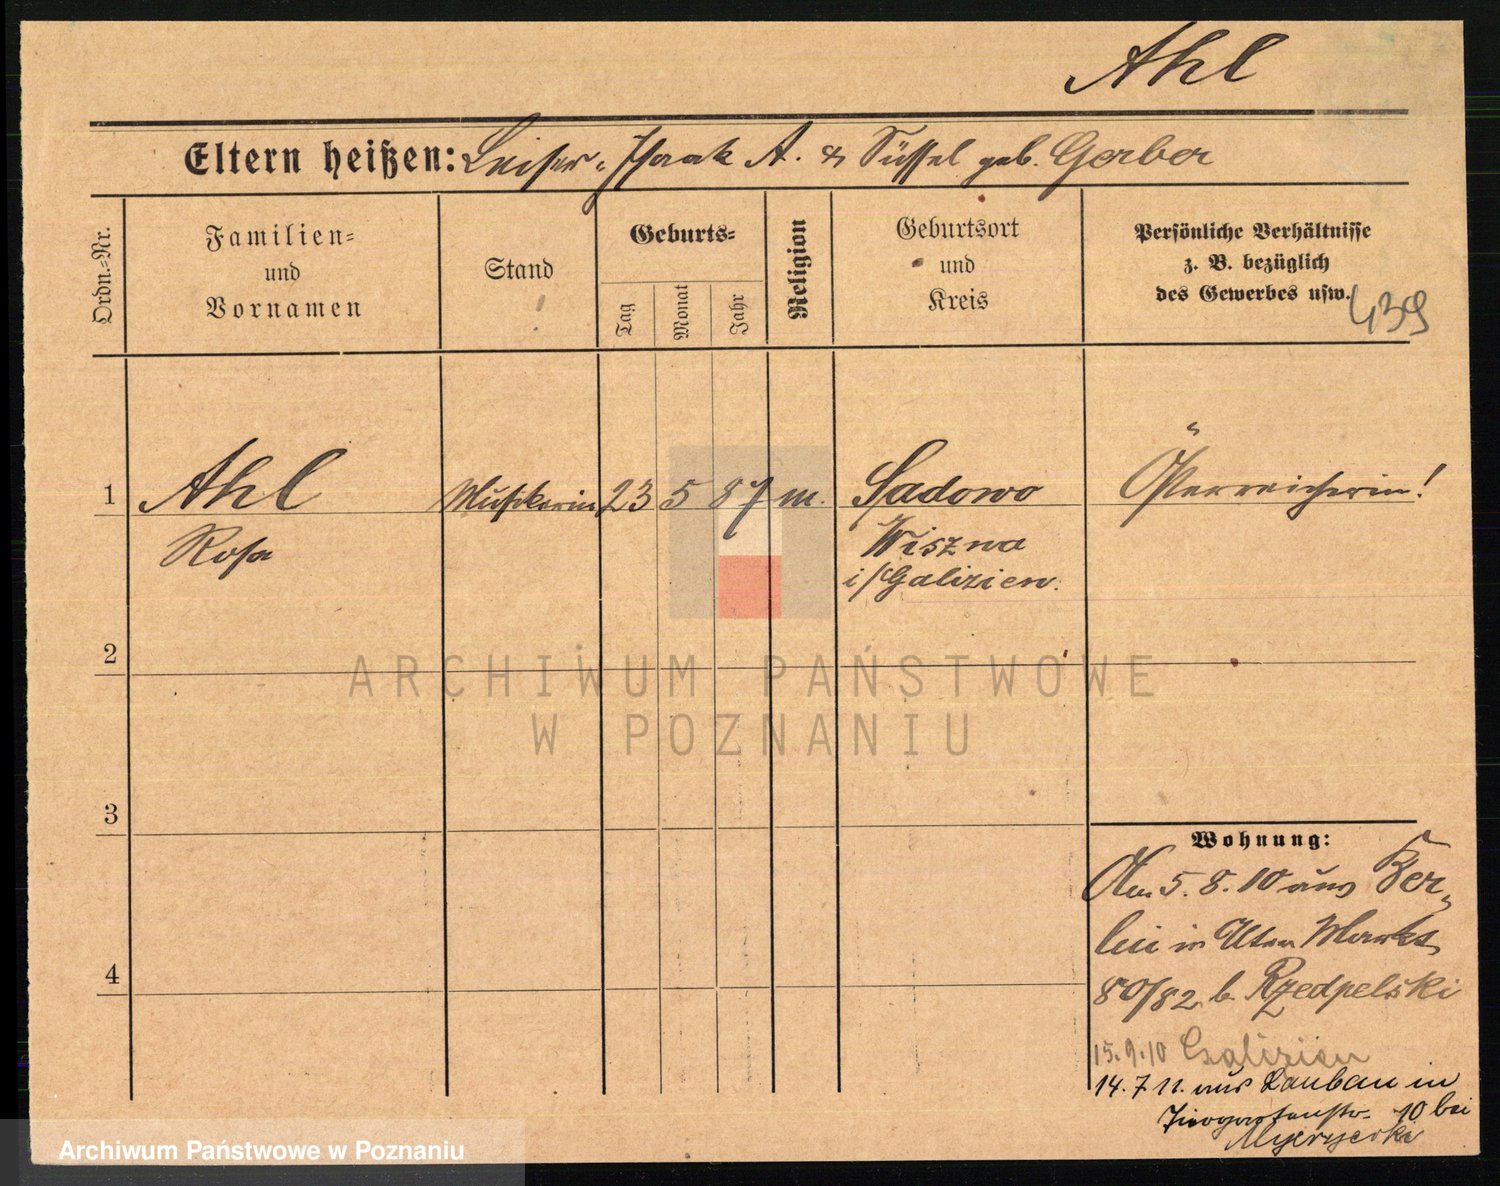 Ahl
Eltern heißen: Leiser-Isaak A. & Süssel geb. Gerber
Ordn.-Nr.
Familien- und Vornamen
Stand
Geburts-
Tag
Monat
Jahr
Religion
Geburtsort und Kreis
Persönliche Verhältnisse
z. B. bezüglich
des Gewerbes usw.
439
1 Ahl Musikerin 23 5 87 m. Sadowo Österreicherin!
Rosa Wiszna
i/Galizien.
2
3
4
Wohnung:
Am 5.8.10 aus Ber-
lin in Alten Markt
80/82 b. Rzedpelski
15.9.10 Galizien
14.7.11. aus Lauban in
Tiergartenstr. 10 bei
ARCHIWUM PAŃSTWOWE
W POZNANIU
Archiwum Państwowe w Poznaniu